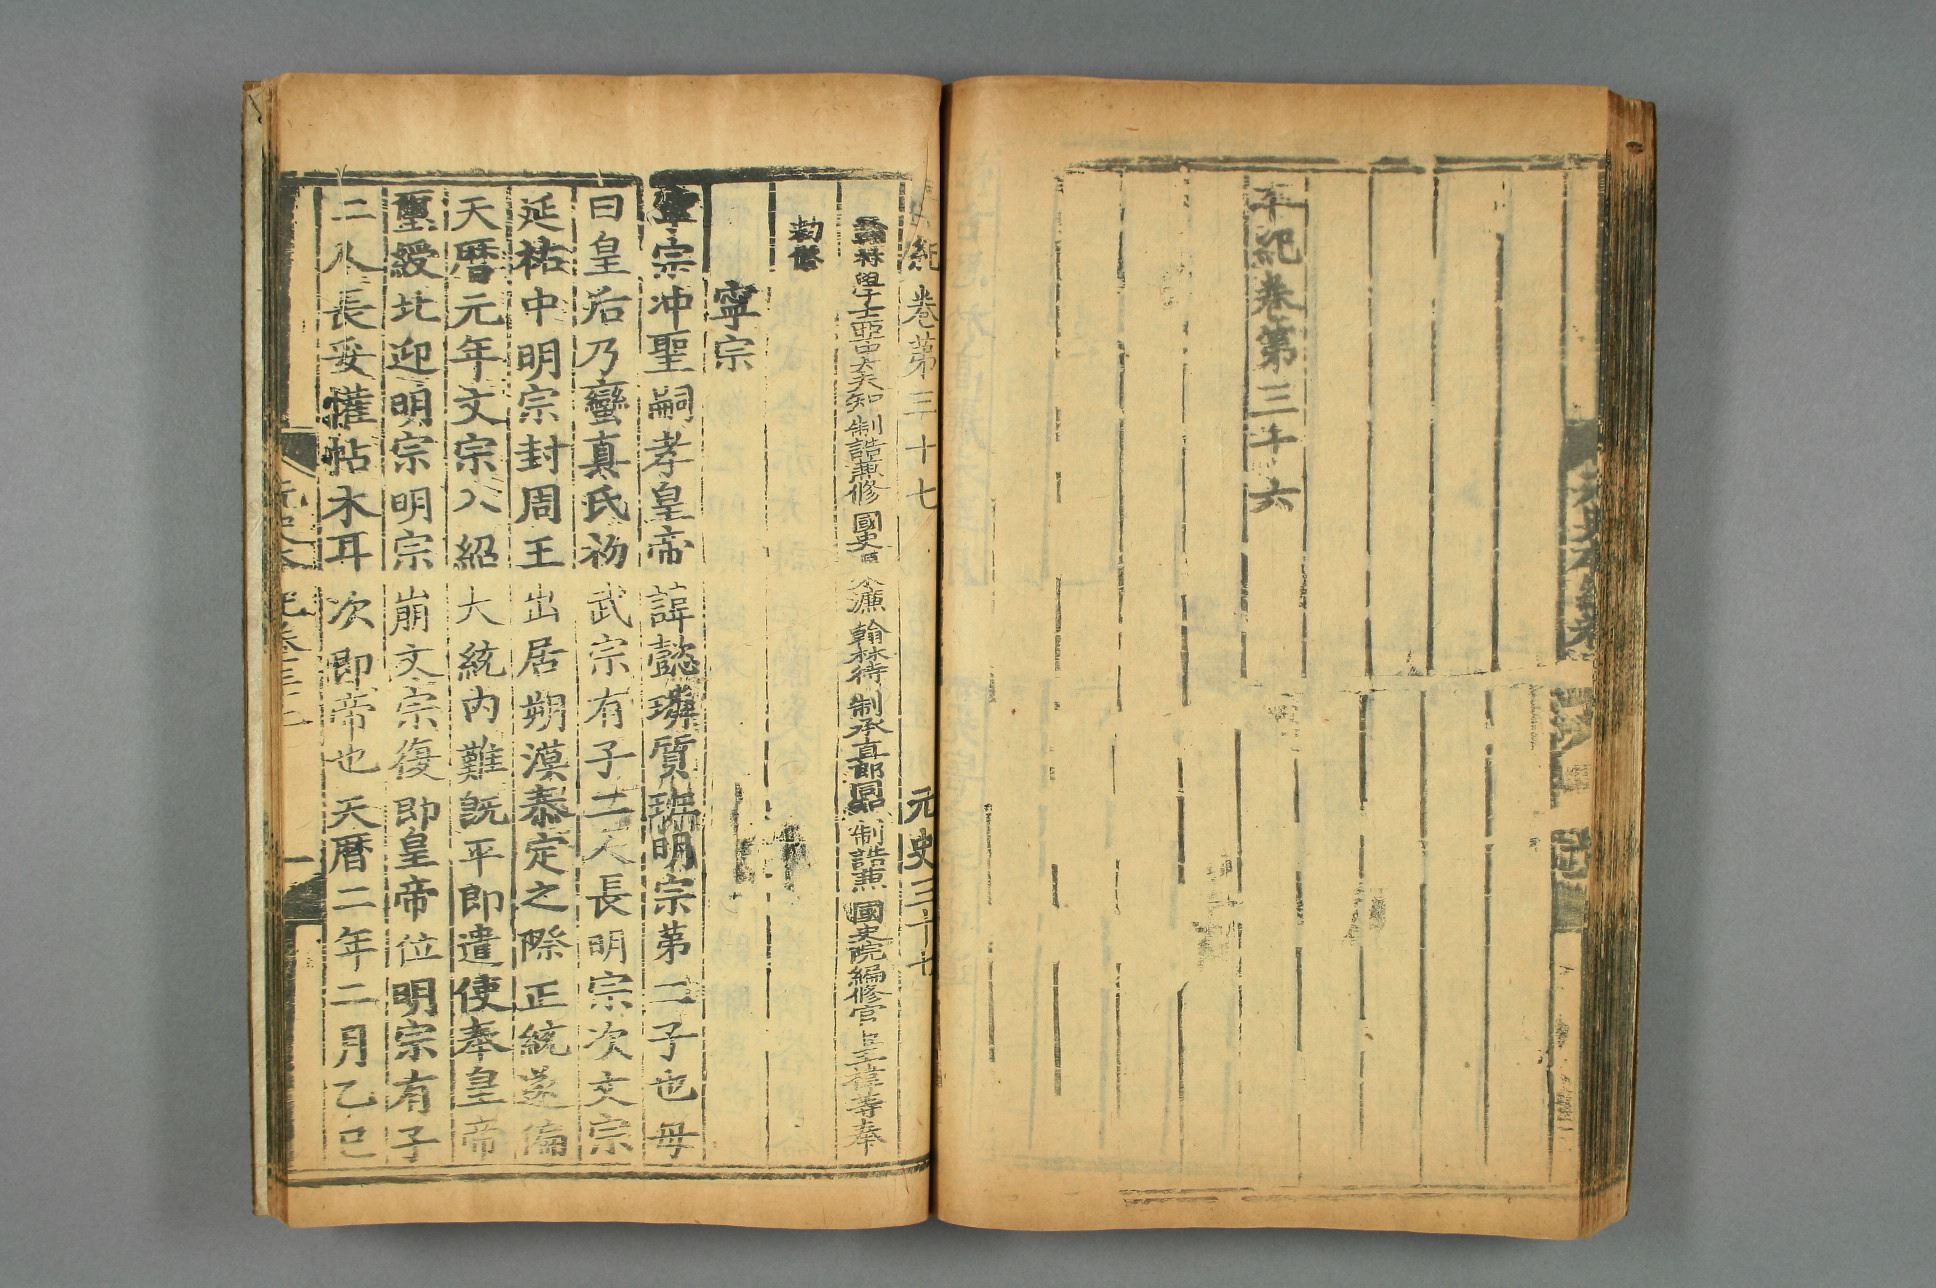 本紀卷第三十六
紀卷第三十七
元史三十七
翰林學士亞中大夫知制誥兼修國史臣宋濂翰林待制承直郎同知制誥兼國史院編修官臣王禕等奉
勅修
寧宗
寧宗冲聖嗣孝皇帝諱懿璘質班明宗第二子也母
曰皇后乃蠻真氏初武宗有子二人長明宗次文宗
延祐中明宗封周王出居朔漠泰定之際正統遂偏
天曆元年文宗入紹大統內難既平即遣使奉皇帝
璽綬北迎明宗明宗崩文宗復即皇帝位明宗有子
二人長妥懽帖木耳次即帝也天曆二年二月乙巳